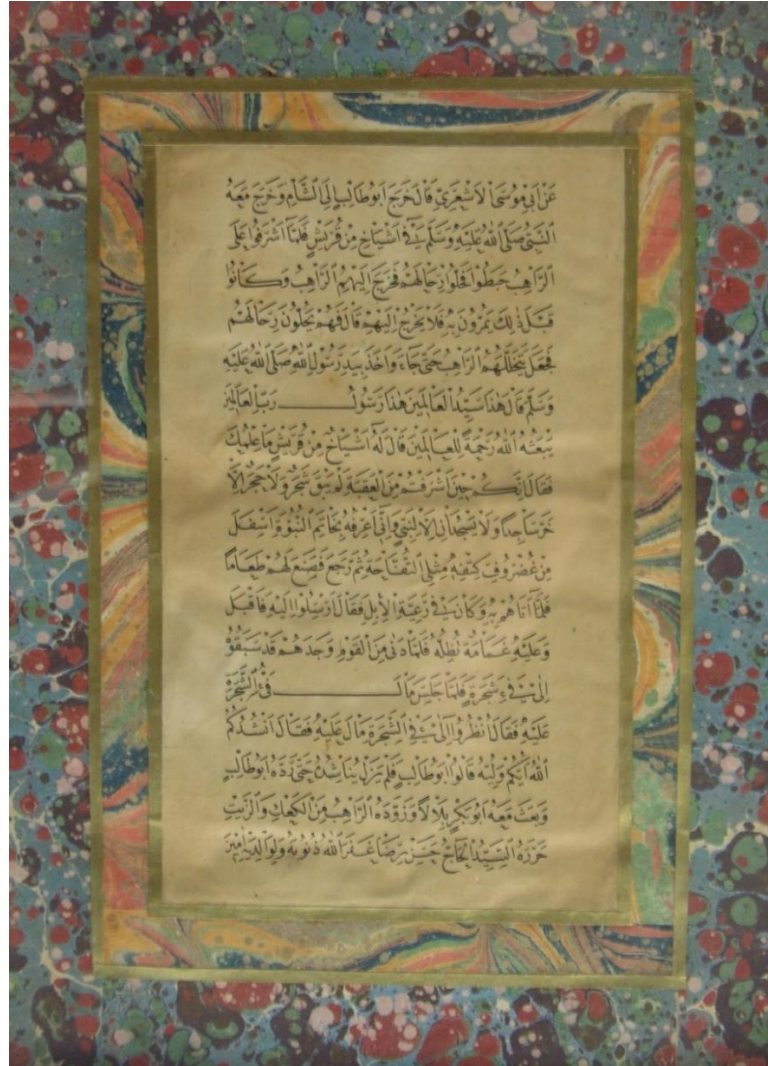 عَنْ اَبِي مُوسَى الْاَشْعَرِيِّ قَالَ خَرَجَ اَبُو طَالِبٍ اِلَى الشَّامِ وَخَرَجَ مَعَهُ
النَّبِيُّ صَلَّى اللهُ عَلَيْهِ وَسَلَّمَ فِي اَشْيَاخٍ مِنْ قُرَيْشٍ فَلَمَّا اَشْرَفُوا عَلَى
الرَّاهِبِ هَبَطُوا فَحَلُّوا رِحَالَهُمْ فَخَرَجَ اِلَيْهِمُ الرَّاهِبُ وَكَانُوا
قَبْلَ ذٰلِكَ يَمُرُّونَ بِهِ فَلَا يَخْرُجُ اِلَيْهِمْ قَالَ فَهُمْ يَحُلُّونَ رِحَالَهُمْ
فَجَعَلَ يَتَخَلَّلُهُمُ الرَّاهِبُ حَتَّى جَاءَ وَاَخَذَ بِيَدِ رَسُولِ اللهِ صَلَّى اللهُ عَلَيْهِ
وَسَلَّمَ قَالَ هٰذَا سَيِّدُ الْعَالَمِينَ هٰذَا رَسُولُ رَبِّ الْعَالَمِينَ
يَبْعَثُهُ اللهُ رَحْمَةً لِلْعَالَمِينَ قَالَ لَهُ اَشْيَاخٌ مِنْ قُرَيْشٍ مَا عِلْمُكَ
فَقَالَ اِنَّكُمْ حِينَ اَشْرَفْتُمْ مِنَ الْعَقَبَةِ لَمْ يَبْقَ شَجَرٌ وَلَا حَجَرٌ اِلَّا
خَرَّ سَاجِدًا وَلَا يَسْجُدَانِ اِلَّا لِنَبِيٍّ وَاِنِّي اَعْرِفُهُ بِخَاتَمِ النُّبُوَّةِ اَسْفَلَ
مِنْ غُضْرُوفِ كَتِفِهِ مِثْلَ التُّفَّاحَةِ ثُمَّ رَجَعَ فَصَنَعَ لَهُمْ طَعَامًا
فَلَمَّا اَتَاهُمْ بِهِ وَكَانَ فِي رَعِيَّةِ الْاِبِلِ فَقَالَ اَرْسِلُوا اِلَيْهِ فَاَقْبَلَ
وَعَلَيْهِ غَمَامَةٌ تُظِلُّهُ فَلَمَّا دَنٰى مِنَ الْقَوْمِ وَجَدَهُمْ قَدْ سَبَقُوهُ
اِلٰى فَيْءِ شَجَرَةٍ فَلَمَّا جَلَسَ مَالَ فَيْءُ الشَّجَرَةِ
عَلَيْهِ فَقَالَ انْظُرُوا اِلٰى فَيْءِ الشَّجَرَةِ مَالَ عَلَيْهِ فَقَالَ اَنْشُدُكُمُ
اللهَ اَيُّكُمْ وَلِيُّهُ قَالُوا اَبُو طَالِبٍ فَلَمْ يَزَلْ يُنَاشِدُهُ حَتَّى رَدَّهُ اَبُو طَالِبٍ
وَبَعَثَ مَعَهُ اَبُو بَكْرٍ بِلَالًا وَزَوَّدَهُ الرَّاهِبُ مِنَ الْكَعْكِ وَالزَّيْتِ
حَرَّرَهُ السَّيِّدُ الْحَاجُّ حَسَنْ رِضَا غَفَرَ اللهُ ذُنُوبَهُ وَلِوَالِدَيْهِ اٰمِينَ